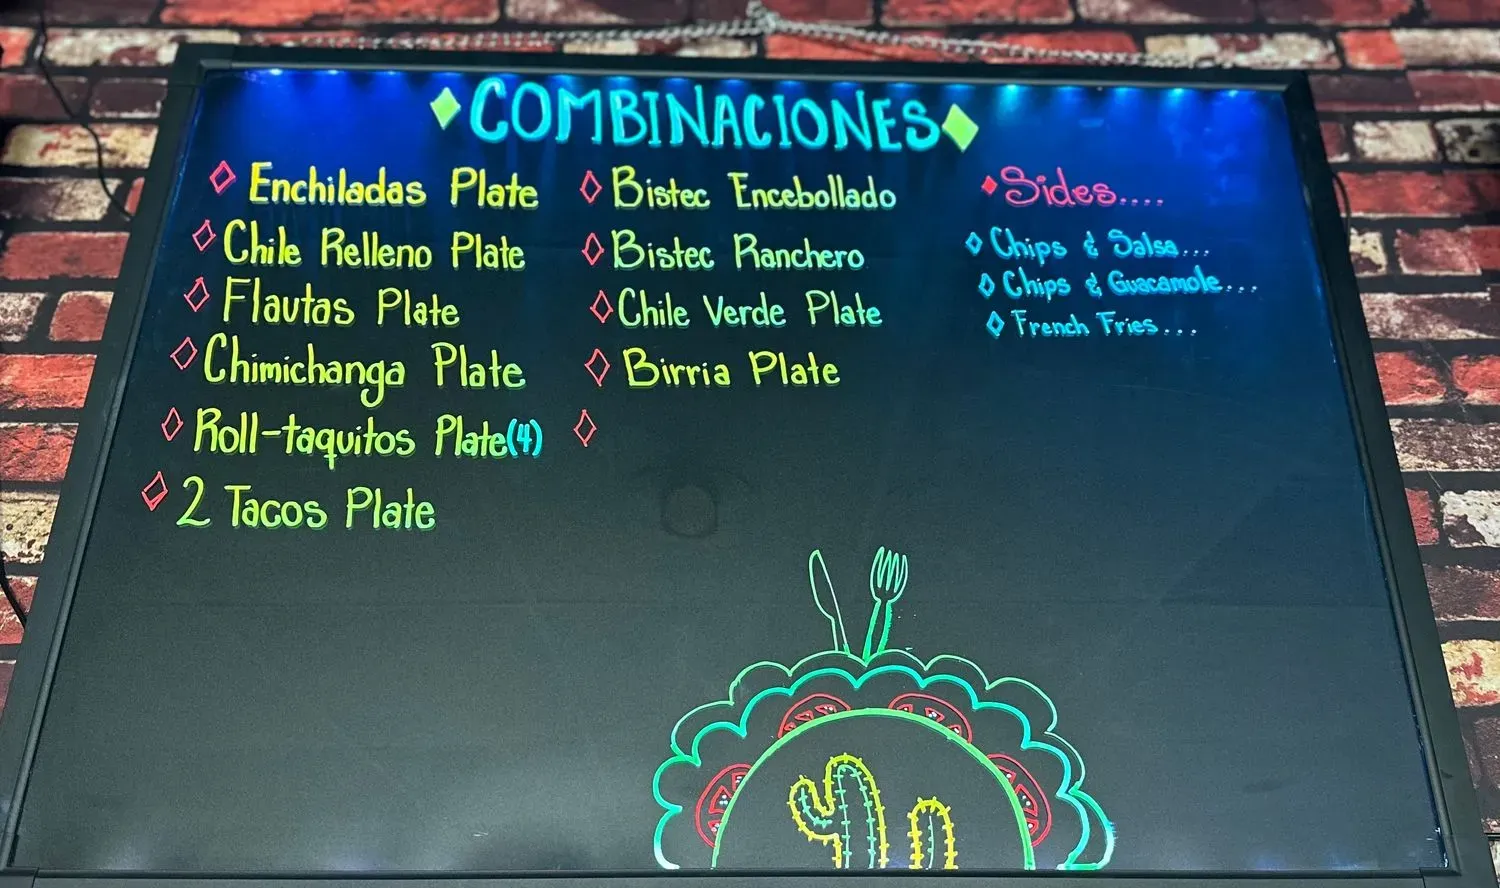 COMBINACIONES
Enchiladas Plate
Chile Relleno Plate
Flautas Plate
Chimichanga Plate
Roll-taquitos Plate(4)
2 Tacos Plate
Bistec Encebollado
Bistec Ranchero
Chile Verde Plate
Birria Plate
Sides....
Chips & Salsa...
Chips & Guacamole...
French Fries...